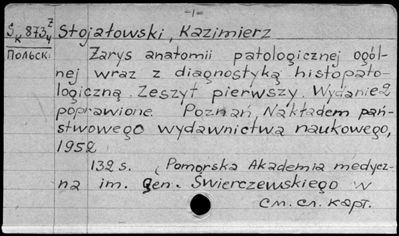 -1-
S 873 Z Stojałowski, Kazimierz
K 4
Польск. Zarys anatomii patologicznej ogól-
nej wraz z diagnostyką histopato-
logiczną. Zeszyt pierwszy. Wydanie 2
poprawione. Poznań, Nakładem pań-
stwowego wydawnictwa naukowego,
1952
132 s. (Pomorska Akademia medycz-
na im. gen. Swierczewskiego w
См. сл. карт.